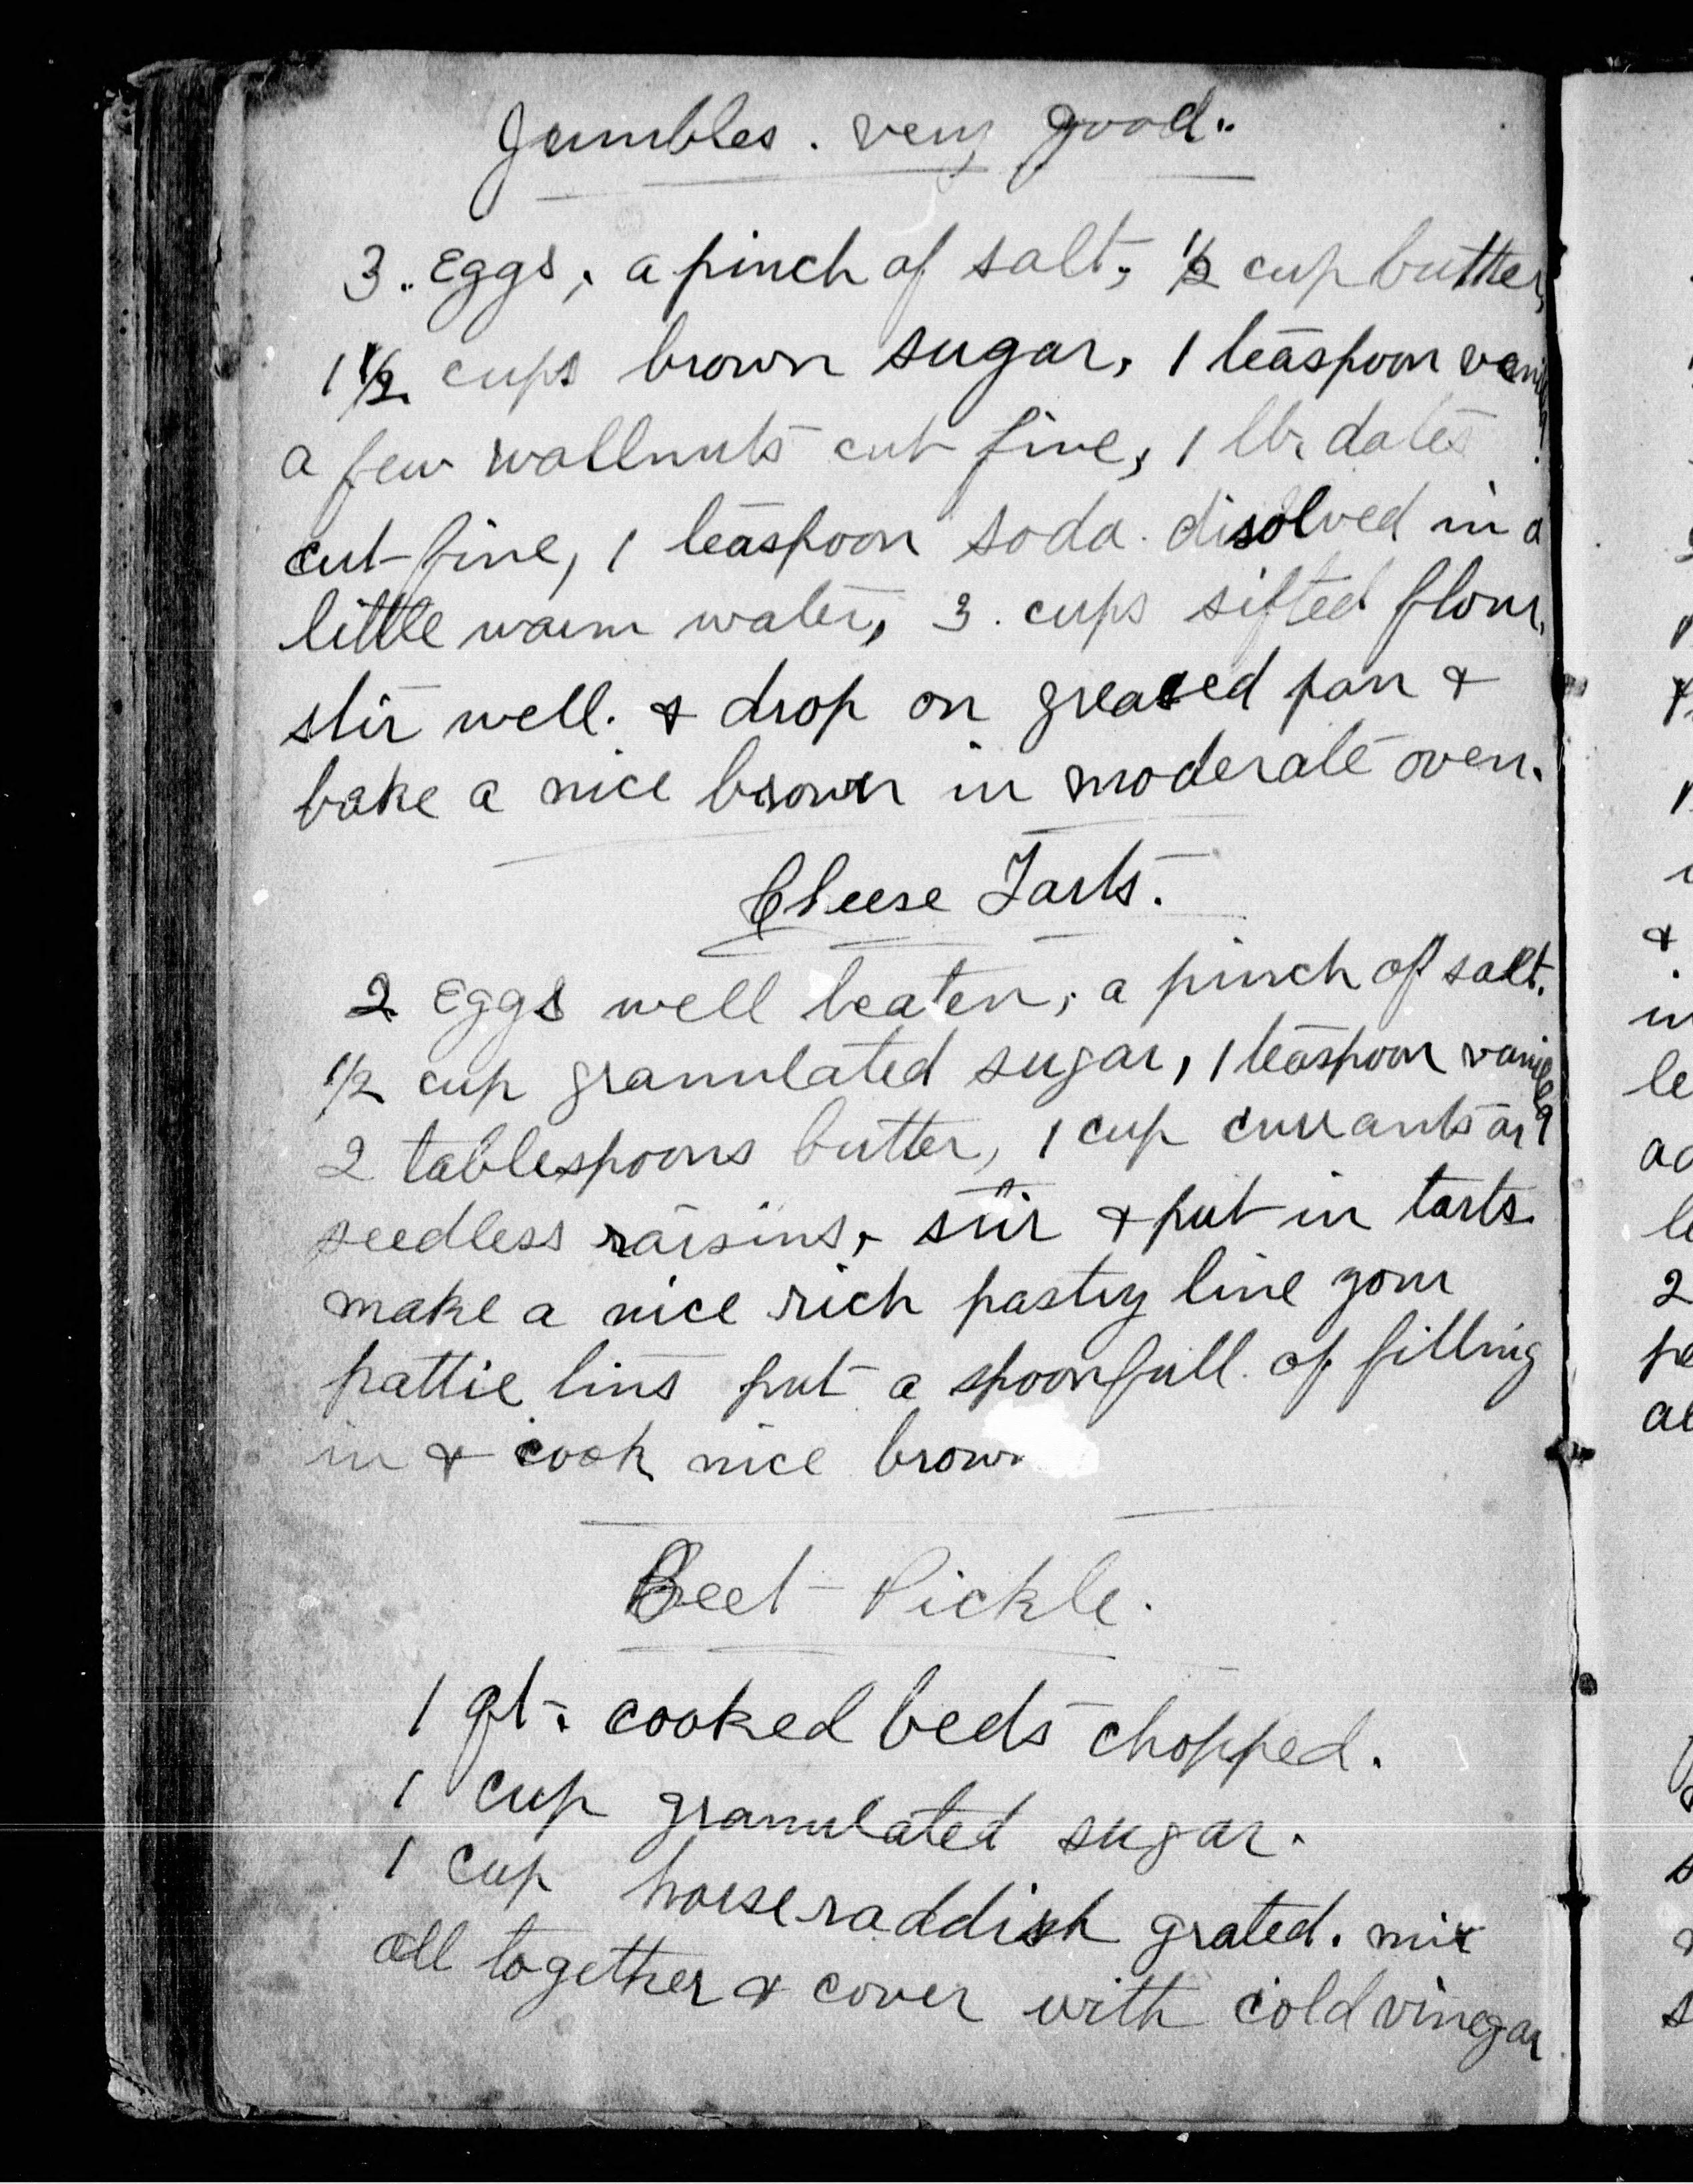 Jumbles. very good..
3.. Eggs, a pinch of salt, 1/2 cup butter,
1 1/2 cups brown sugar, 1 teaspoon vanilla
a few wallnuts cut fine, 1 lb. dates
cut fine, 1 teaspoon soda. disolved in a
little warm water, 3. cups sifted flour,
stir well. & drop on greased pan &
bake a nice brown in moderate oven.
Cheese Tarts.
2 Eggs well beaten, a pinch of salt.
1/2 cup granulated sugar, 1 teaspoon vanilla
2 tablespoons butter, 1 cup currants or
seedless raisins, stir & put in tarts.
make a nice rich pastry line your
pattie tins put a spoonfull of filling
in & cook nice brown
Beet Pickle.
1 qt. cooked beets chopped.
1 cup granulated sugar.
1 cup horseraddish grated. mix
all together & cover with cold vinegar